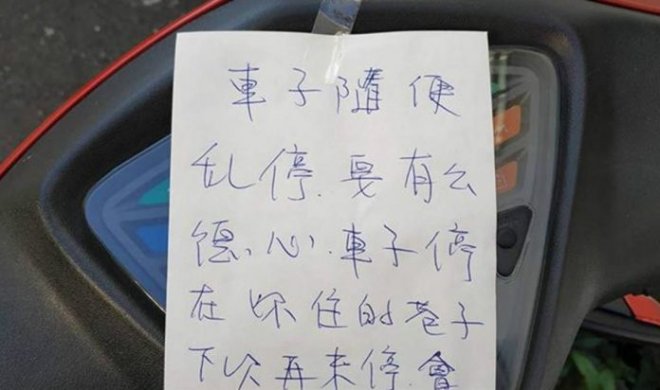 車子隨便
乱停.要有公
德心.車子停
在你住的巷子
下次再来停.會